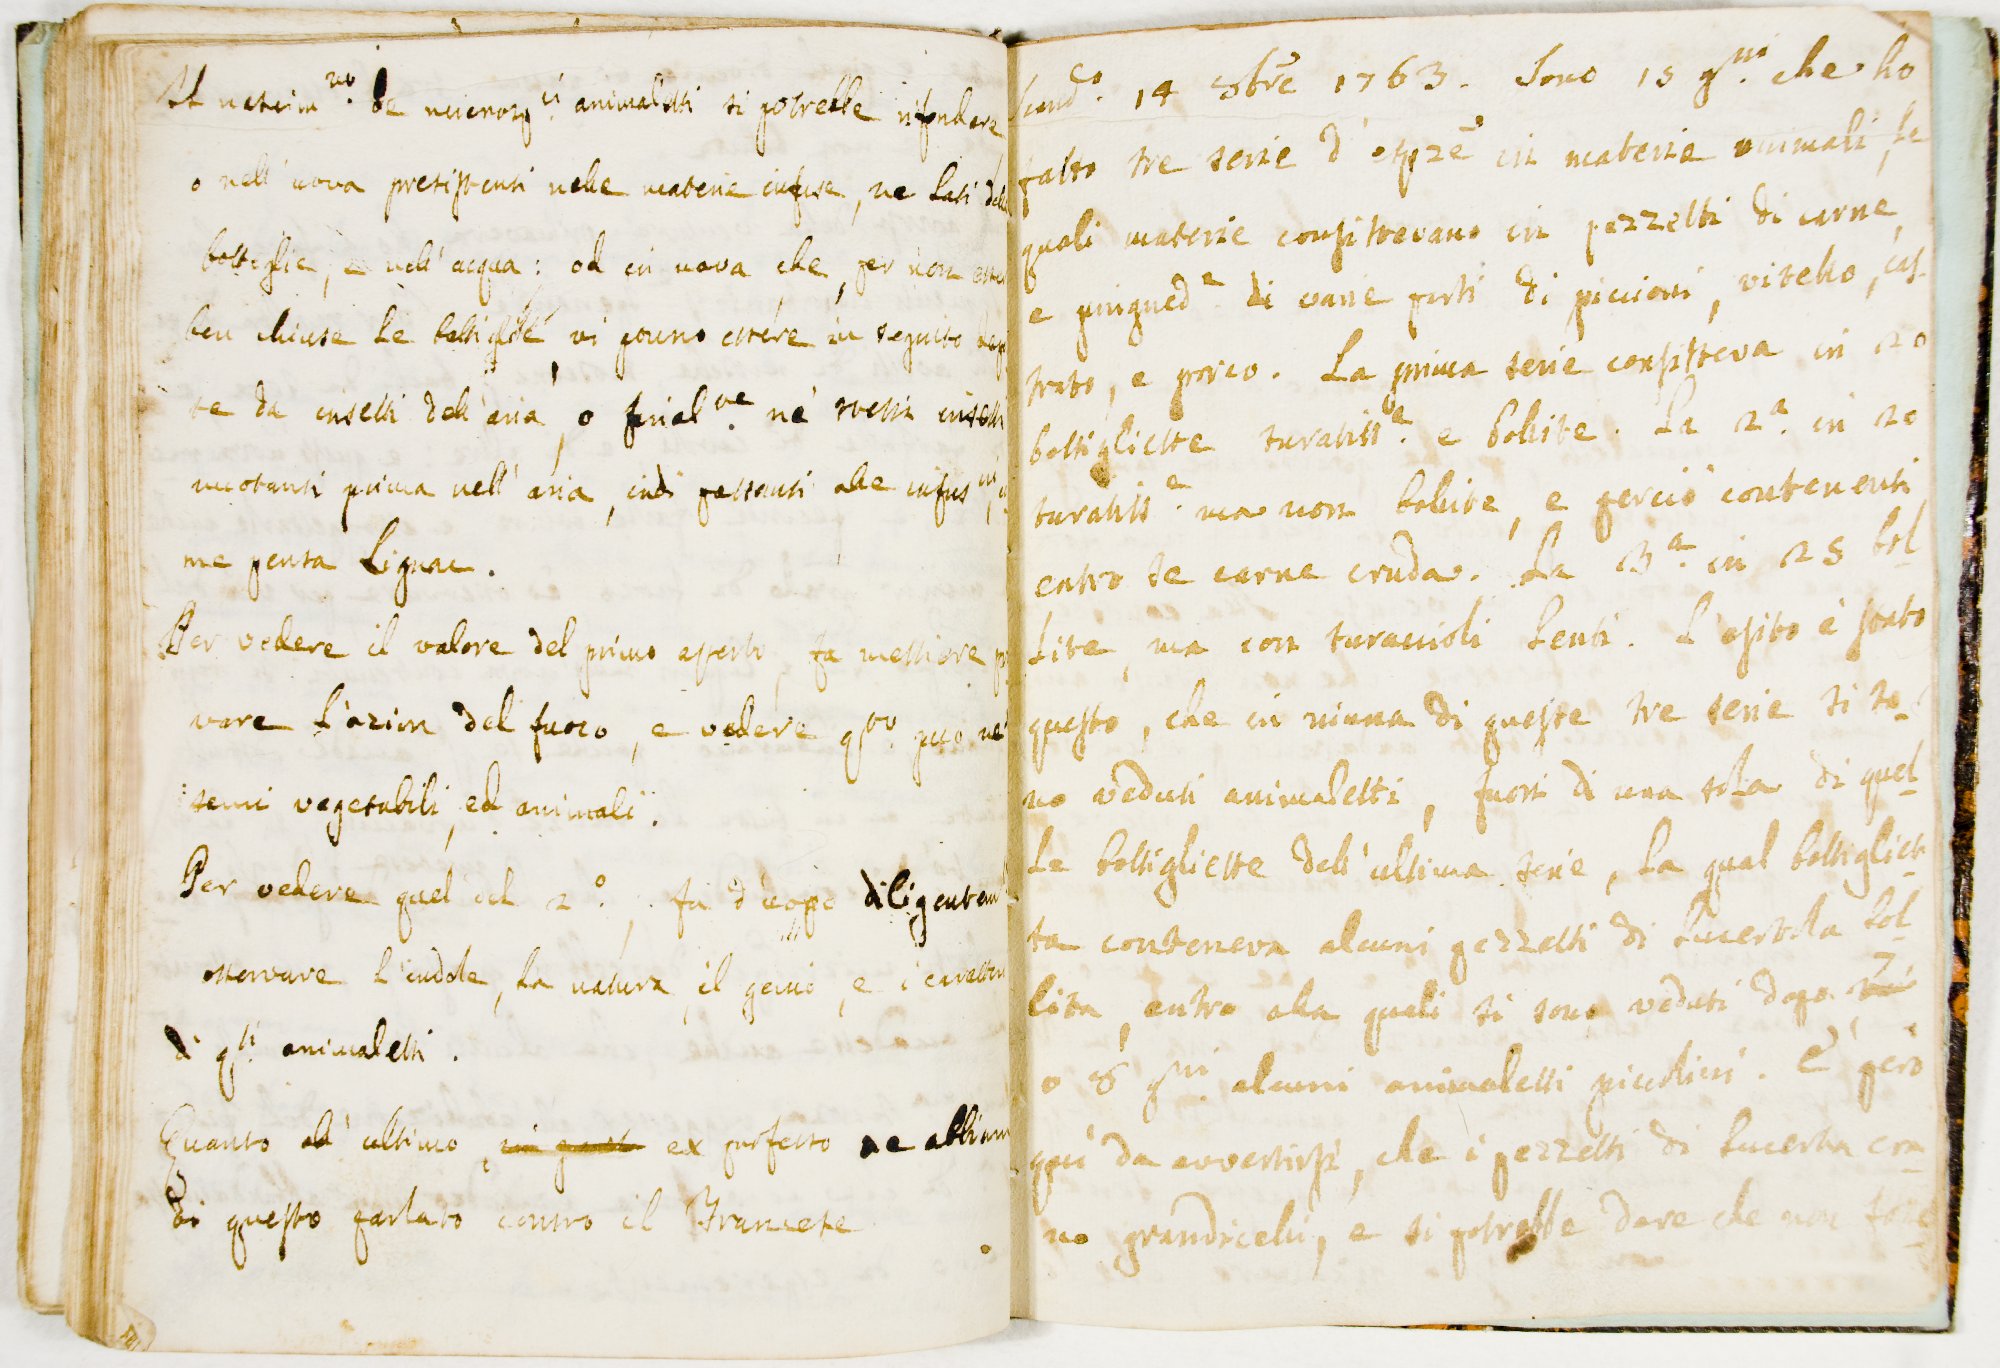 Il nascim.to de microsc.ci animaletti si potrebbe rifondere
o nell' uova presistenti nelle materie infuse, ne lati delle
bottiglie, e nell' acqua: od in uova che, per non essere
ben chiuse le bottiglie vi ponno essere in seguito depo
te da insetti dell' aria, o final.te ne' stessi insetti
nuotanti prima nell' aria, indi passanti alle infus.ni,
me pensa Lignac.
Per vedere il valore del primo asserto, fa mestiere pro
vare l'azion del fuoco, e vedere q.to può ne'
semi vegetabili, ed animali.
Per vedere quel del 2.o, fa d'uopo diligentem
osservare l'indole, la natura, il genio, e i caratteri
di q.sti animaletti.
Quanto all' ultimo, ex professo ne abbiam
di questo parlato contro il Francese
14 8bre 1763. Sono 15 g.ni che ho
fatto tre serie d'esp.ze in materie animali, le
quali materie consistevano in pezzetti di carne,
e pingued.e di varie parti di piccioni, vitello, cas-
trato, e porco. La prima serie consisteva in 20
bottigliette turatiss.e e bollite. La 2.a in 20
turatiss.e ma non bollite, e perciò contenenti
entro se carne cruda. La 3.a in 25 bol-
lite, ma con turaccioli lenti. L'esito è stato
questo, che in niuna di queste tre serie si so-
no veduti animaletti, fuori di una sola di quel-
le bottigliette dell' ultima serie, la qual bottigliet-
ta conteneva alcuni pezzetti di lucertola bol-
lita, entro alla quale si sono veduti dopo 7
o 8 g.ni alcuni animaletti piccolini. È però
qui da avvertirsi, che i pezzetti di lucerta era-
no grandicelli, e si potrebbe dare che non fosse-